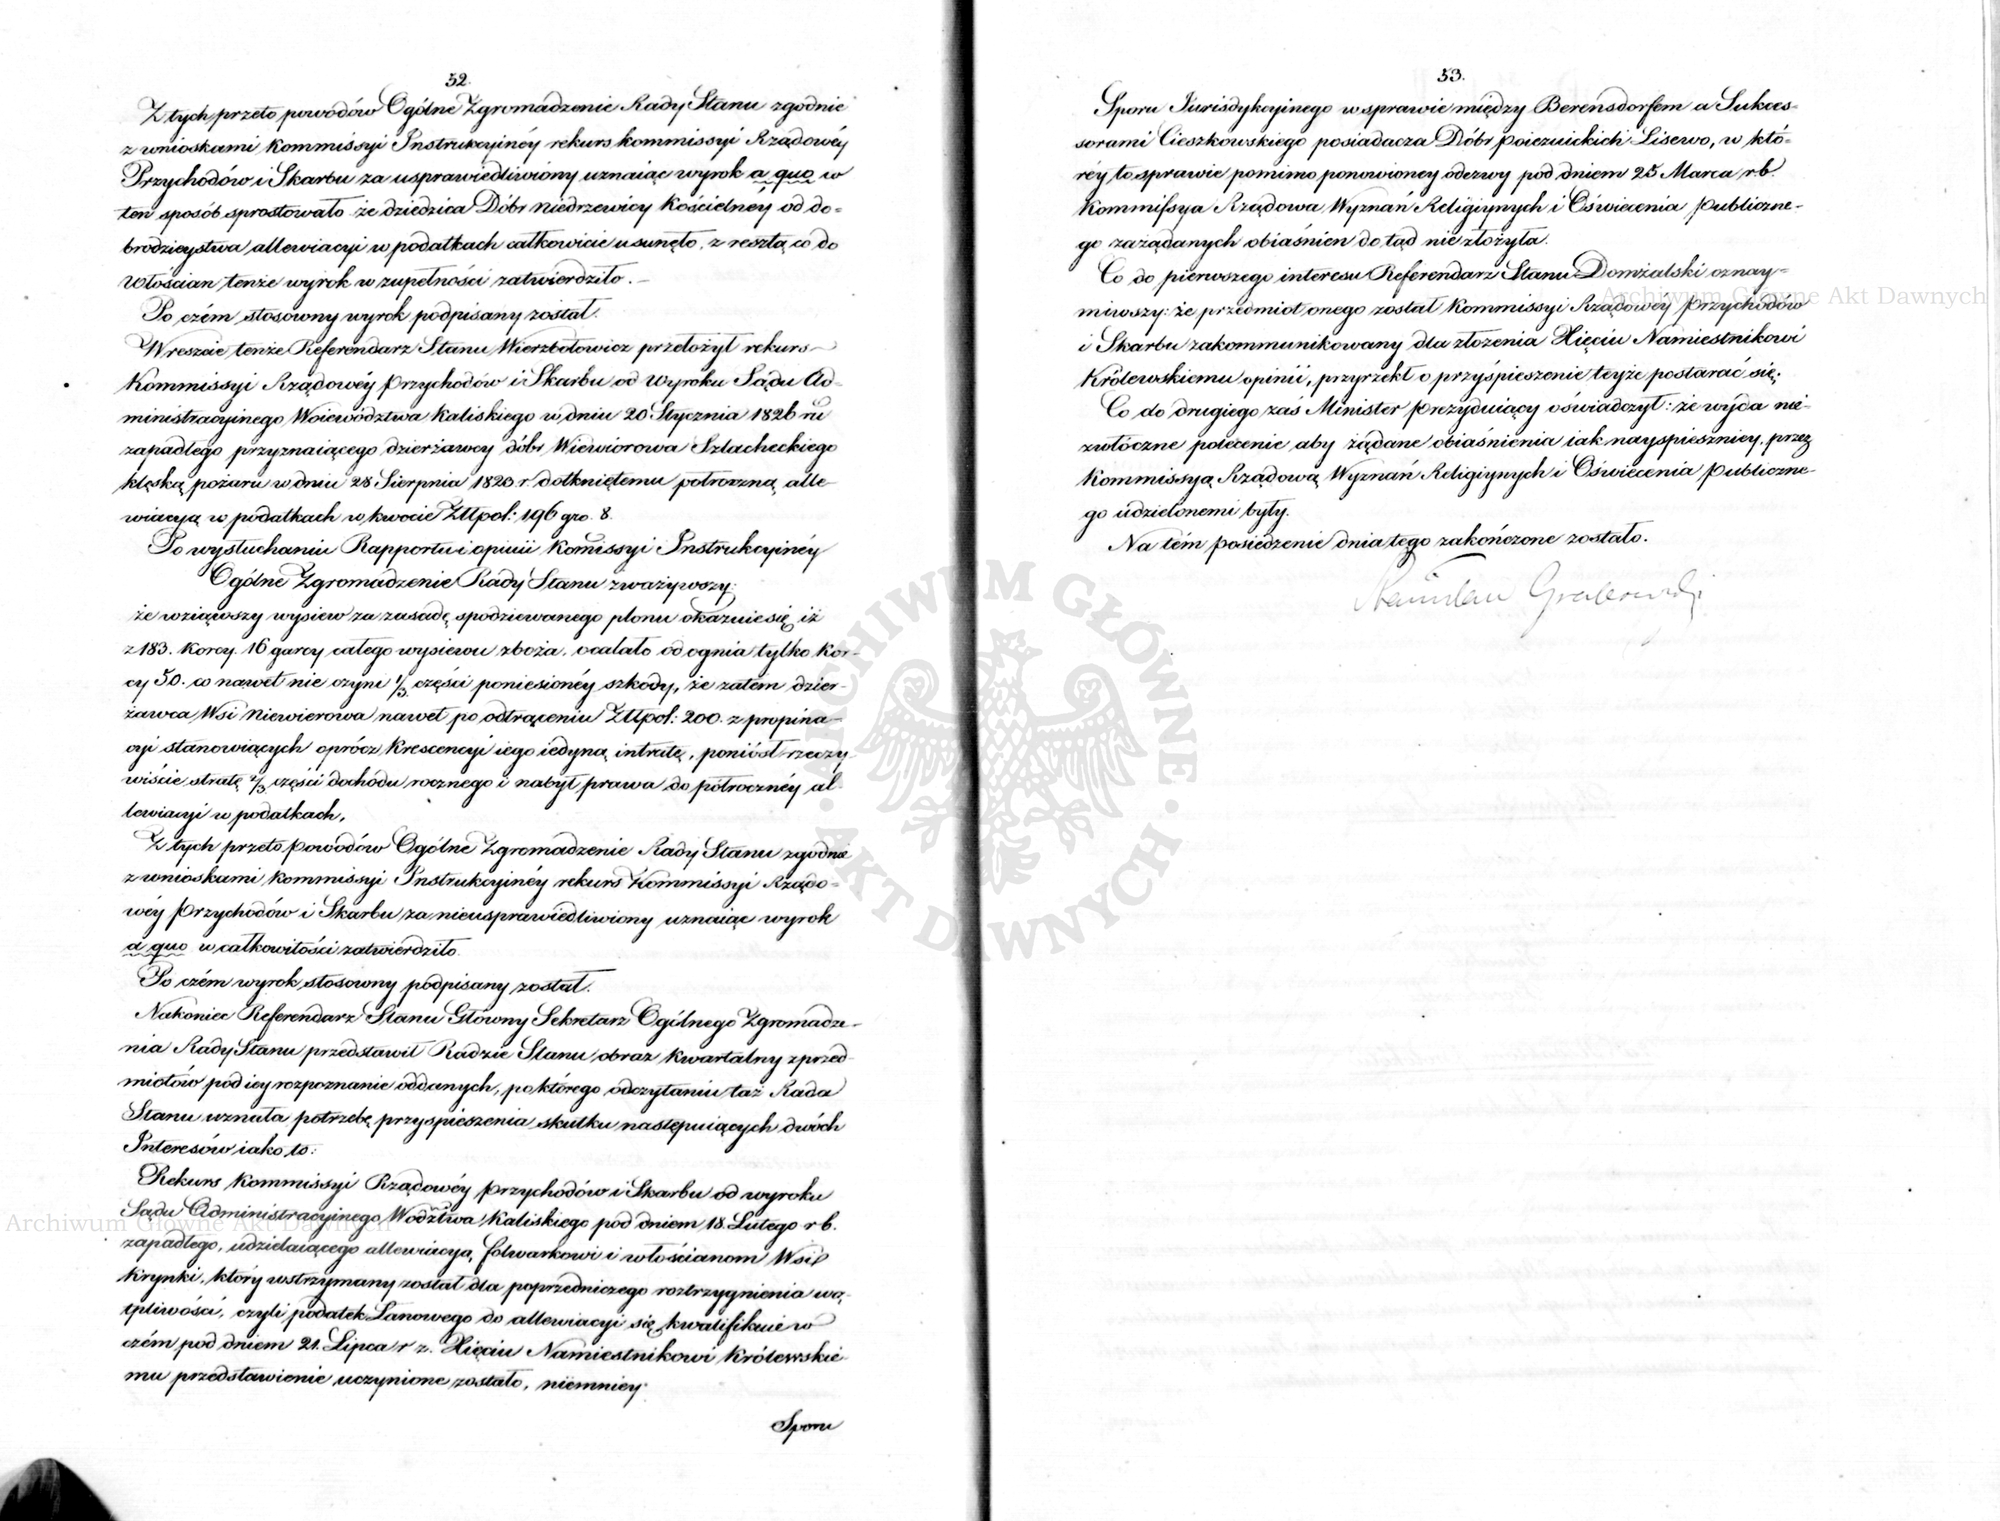 52.
Z tych przeto powodów Ogólne Zgromadzenie Rady Stanu zgodnie
z wnioskami Kommissyi Instrukcyinéy rekurs Kommissyi Rządowéy
Przychodów i Skarbu za usprawiedliwiony uznaiąc wyrok a quo w
ten sposób sprostowało że dziedzica Dóbr Niedrzewicy Kościelnéy od do-
brodzieystwa allewiacyi w podatkach całkowicie usunęło, z resztą co do
Włościan tenże wyrok w zupełności zatwierdziło.—
Po czém stosowny wyrok podpisany został.
Wreszcie tenże Referendarz Stanu Wierzbołowicz przełożył rekurs
Kommissyi Rządowéy Przychodów i Skarbu od Wyroku Sądu Ad-
ministracyinego Woiewództwa Kaliskiego w dniu 20 Stycznia 1826
zapadłego przyznaiącego dzierżawcy dóbr Wiewiorowa Szlacheckiego
klęską pożaru w dniu 28 Sierpnia 1820 r. dotkniętemu potroczną alle-
wiacyą w podatkach w kwocie Złtpol: 196 gro. 8.
Po wysłuchaniu Rapportu i opinii Komissyi Instrukcyinéy
Ogólne Zgromadzenie Rady Stanu zważywszy:
że wziąwszy wysiew za zasadę spodziewanego plonu okazuie się iż
z 183. Korcy 16 garcy całego wysiewu zboża, ocalało od ognia tylko Kor-
cy 50. co nawet nie czyni 1/3 części poniesionéy szkody, że zatém dzier-
żawca Wsi Niewierowa nawet po odtrąceniu Złtpol: 200. z propina-
cyi stanowiących oprócz Krescencyi iego iedyną intratę, poniósł rzeczy-
wiście stratę 2/3 części dochodu rocznego i nabył prawa do półrocznéy al-
lewiacyi w podatkach,
Z tych przeto powodów Ogólne Zgromadzenie Rady Stanu zgodnie
z wnioskami Kommissyi Instrukcyinéy rekurs Kommissyi Rządo-
wéy Przychodów i Skarbu za nieusprawiedliwiony uznaiąc wyrok
a quo w całkowitości zatwierdziło.
Po czém wyrok stosowny podpisany został.
Nakoniec Referendarz Stanu Główny Sekretarz Ogólnego Zgromadze-
nia Rady Stanu przedstawił Radzie Stanu obraz kwartalny z przed-
miotów pod iey rozpoznanie oddanych, po którego odczytaniu taż Rada
Stanu uznała potrzebę przyspieszenia skutku następuiących dwóch
Interesów iako to:
Rekurs Kommissyi Rządowéy Przychodów i Skarbu od wyroku
Sądu Administracyinego Wodztwa Kaliskiego pod dniem 18. Lutego r b.
zapadłego, udzielaiącego allewiacyą folwarkowi i włościanom Wsi
Krynki, który wstrzymany został dla poprzedniczego roztrzygnienia wą-
tpliwości, czyli podatek Łanowego do allewiacyi się kwalifikuie w
czém pod dniem 21. Lipca r z. Xięciu Namiestnikowi Królewskie-
mu przedstawienie uczynione zostało, niemniey
Sporu
53.
Sporu Jurisdykcyinego w sprawie między Berensdorfem a Sukces-
sorami Cieszkowskiego posiadacza Dóbr poiezuickich Lisewo, w któ-
réy to sprawie pomimo ponowioney odezwy pod dniem 25 Marca r b.
Kommissya Rządowa Wyznań Religiynych i Oświecenia Publiczne-
go zażądanych obiaśnien do tąd nie złożyła.
Co do pierwszego interesu Referendarz Stanu Domżalski oznay-
miwszy: że przedmiot onego został Kommissyi Rządowéy Przychodów
i Skarbu zakommunikowany dla złożenia Xięciu Namiestnikowi
Królewskiemu opinii, przyrzekł o przyśpieszenie teyże postarać się;
Co do drugiego zaś Minister Prezyduiący oświadczył: że wyda nie-
zwłóczne polecenie aby żądane obiaśnienia iak nayspieszniey przez
Kommissyą Rządową Wyznań Religiynych i Oświecenia Publiczne-
go udzielonemi były.
Na tém posiedzenie dnia tego zakończone zostało.
Stanisław Grabowski
ARCHIWUM GŁÓWNE · AKT DAWNYCH ·
Archiwum Główne Akt Dawnych
Archiwum Główne Akt Dawnych